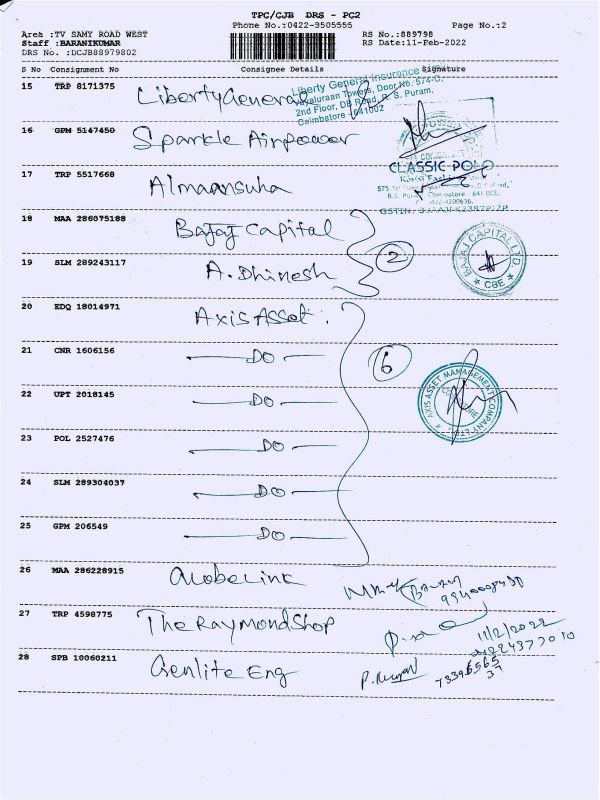 TPC/CJB DRS - PC2
Phone No.:0422-3505555 Page No.:2
Area :TV SAMY ROAD WEST RS No.:889798
Staff :BARANIKUMAR RS Date:11-Feb-2022
DRS No. :DCJB88979802
S No Consignment No Consignee Details Signature
15 TRP 8171375 Liberty General
Liberty General Insurance
Towers, Door No. 574-C,
2nd Floor, DB Road, R. S. Puram,
Coimbatore - 641002
16 GPM 5147450 Sparkle Airpower
CLASSIC POLO
17 TRP 5517668 Almaansuha
18 MAA 286075188 Bajaj Capital
2
BAJAJ CAPITAL LTD. * CBE *
19 SLM 289243117 A. Dhinesh
20 EDQ 18014971 Axis Asset
21 CNR 1606156 DO
6
AXIS ASSET MANAGEMENT COMPANY LTD.
22 UPT 2018145 DO
23 POL 2527476 DO
24 SLM 289304037 DO
25 GPM 206549 DO
26 MAA 286228915
27 TRP 4598775 The Raymond Shop
11/2/2022
28 SPB 10060211 Genlite Eng